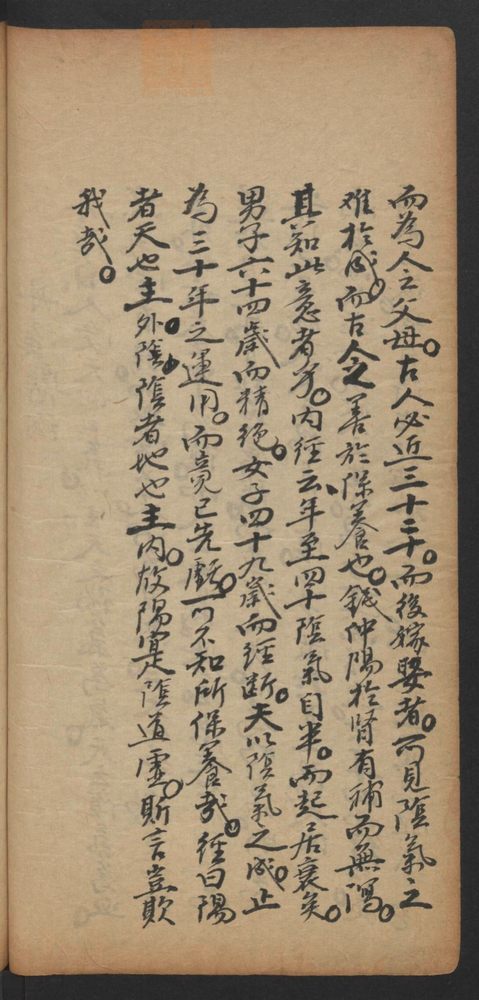 而為人之父母。古人必近三十二十。而後嫁娶者。可見陰氣之
难於成。而古人之善於保養也。錢仲陽於腎有補而無瀉。
其知此意者乎。內經云年至四十陰氣自半。而起居衰矣。
男子六十四歲而精絕。女子四十九歲而經斷。夫以陰氣之成。止
為三十年之運用。而竟已先虧。可不知所保養哉。經曰陽
者天也主外。陰者地也主內。故陽實陰道虛。斯言豈欺
我哉。